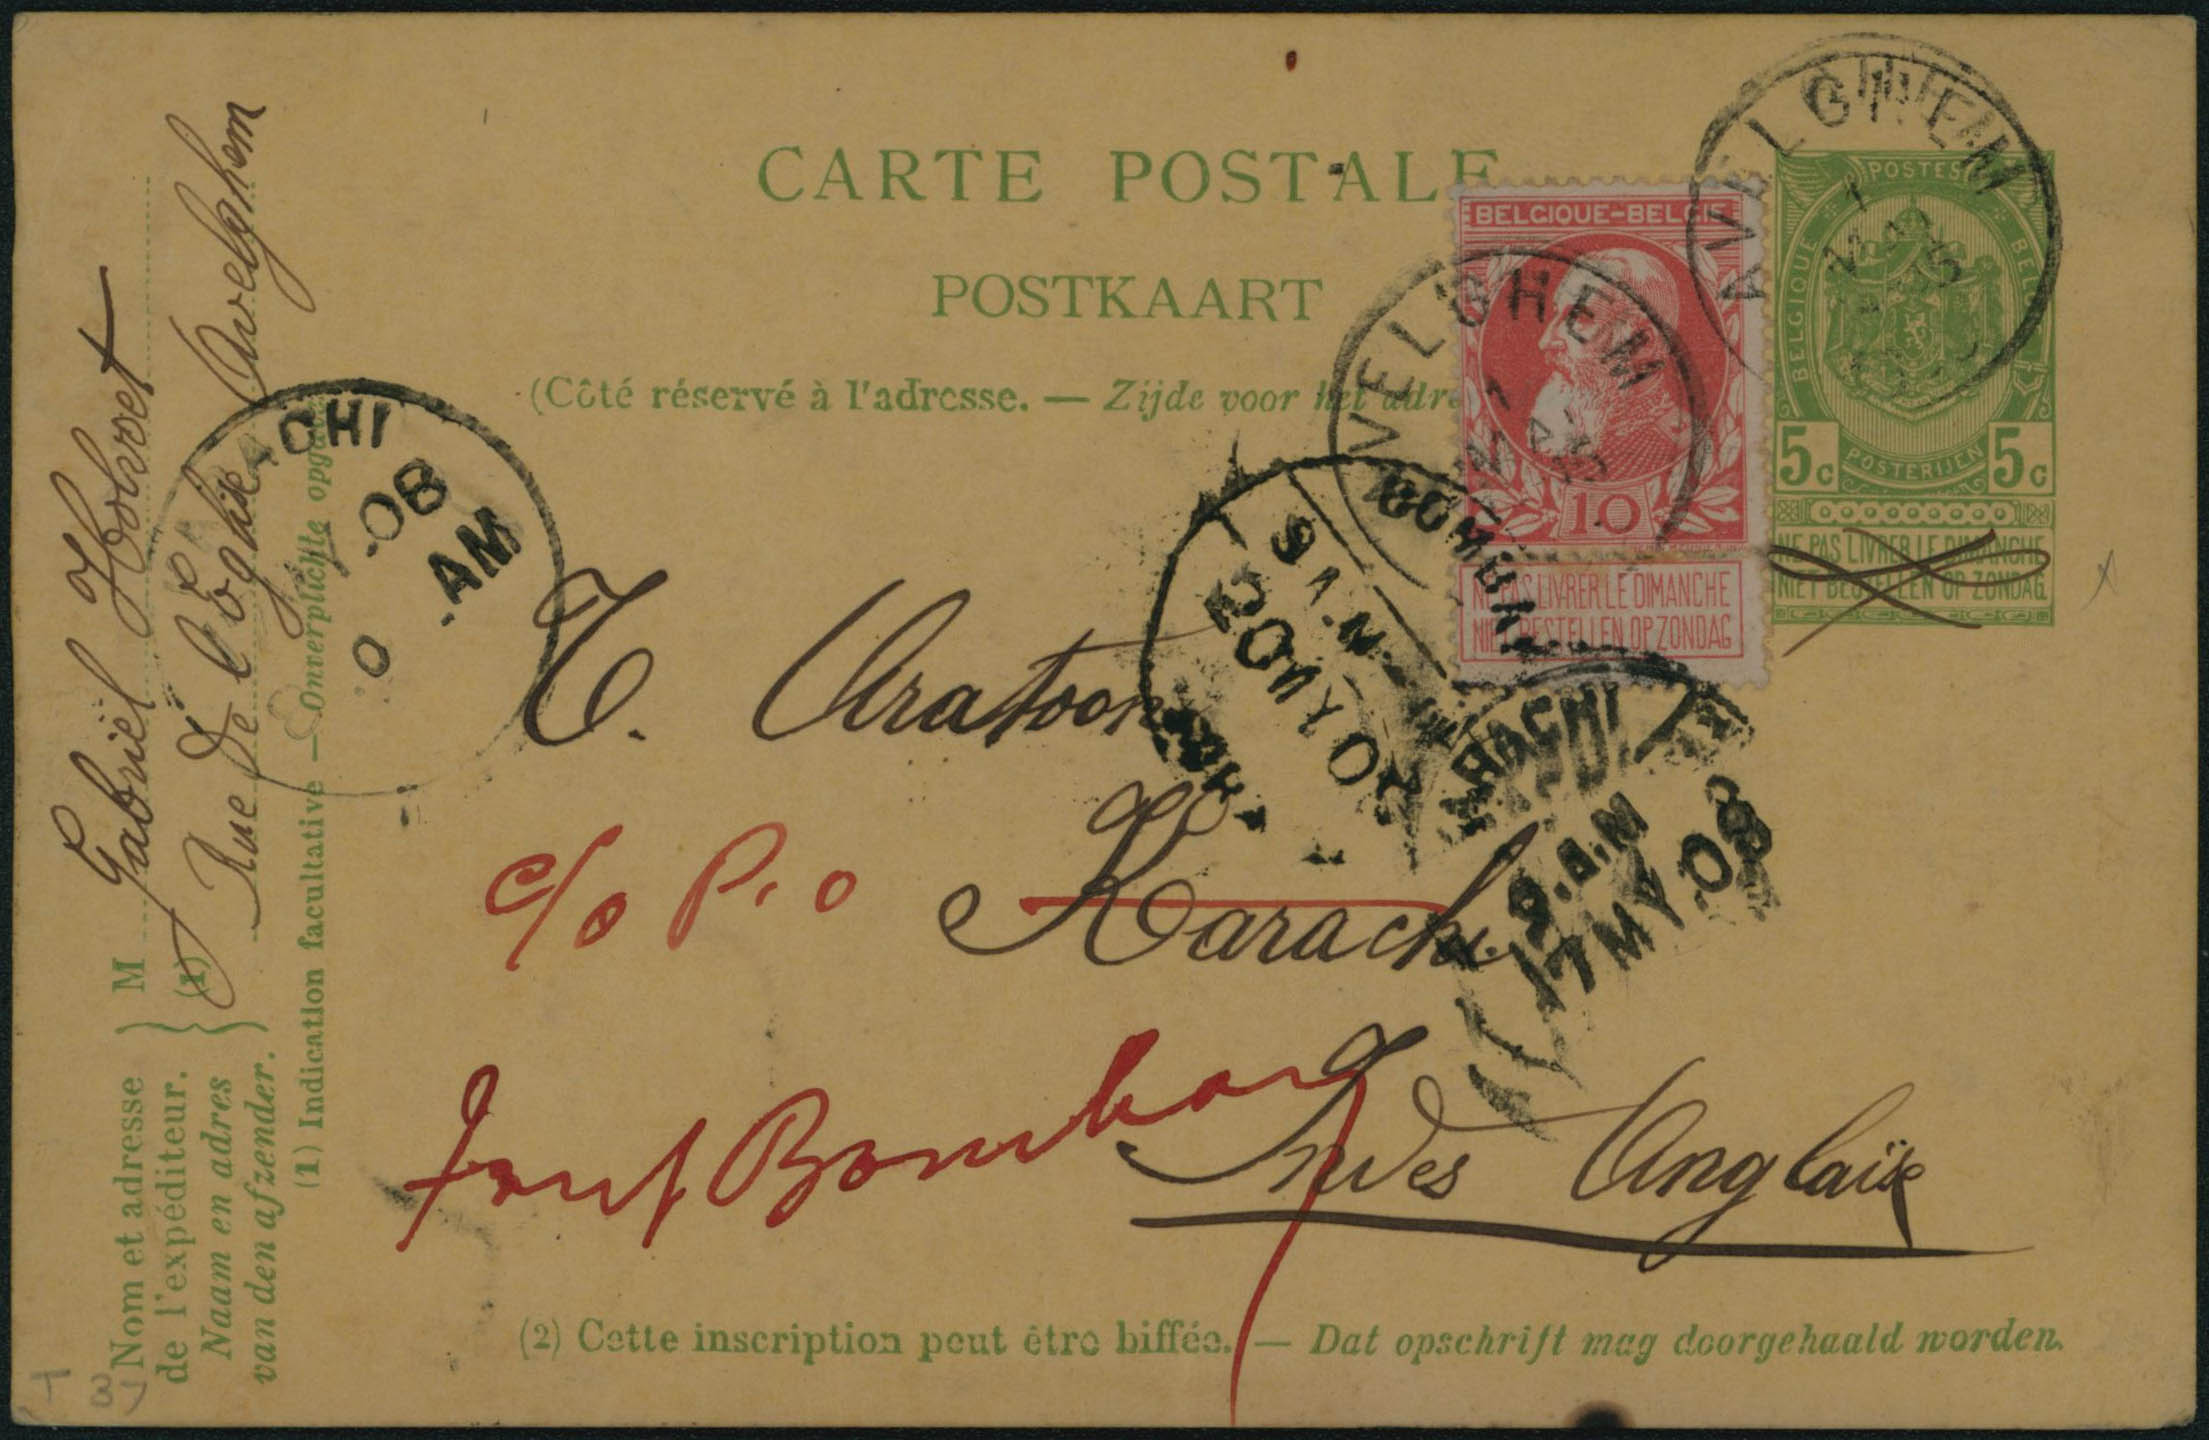 CARTE POSTALE
POSTKAART
(Côté réservé à l'adresse. — Zijde voor het adre
BELGIQUE-BELGIE
10
NE PAS LIVRER LE DIMANCHE
NIET BESTELLEN OP ZONDAG
POSTES
BELGIQUE
BELG
POSTERIJEN
5c 5c
NE PAS LIVRER LE DIMANCHE
NIET BESTELLEN OP ZONDAG
AVELGHEM
1
VELGHEM
1
BOMBAY
9 A.M.
20 MY 08
KARACHI
9.A.M
17 MY.08
ACHI
.08
AM
T. Aratoon
c/o P.O Karachi
Bombay
Indes Anglaise
Gabriël Holvoet
Rue De l'Eglise Avelghem
Nom et adresse
de l'expéditeur.
Naam en adres
van den afzender.
M
(1)
(1) Indication facultative — Onverplichte opgave
(2) Cette inscription peut être biffée. — Dat opschrift mag doorgehaald worden.